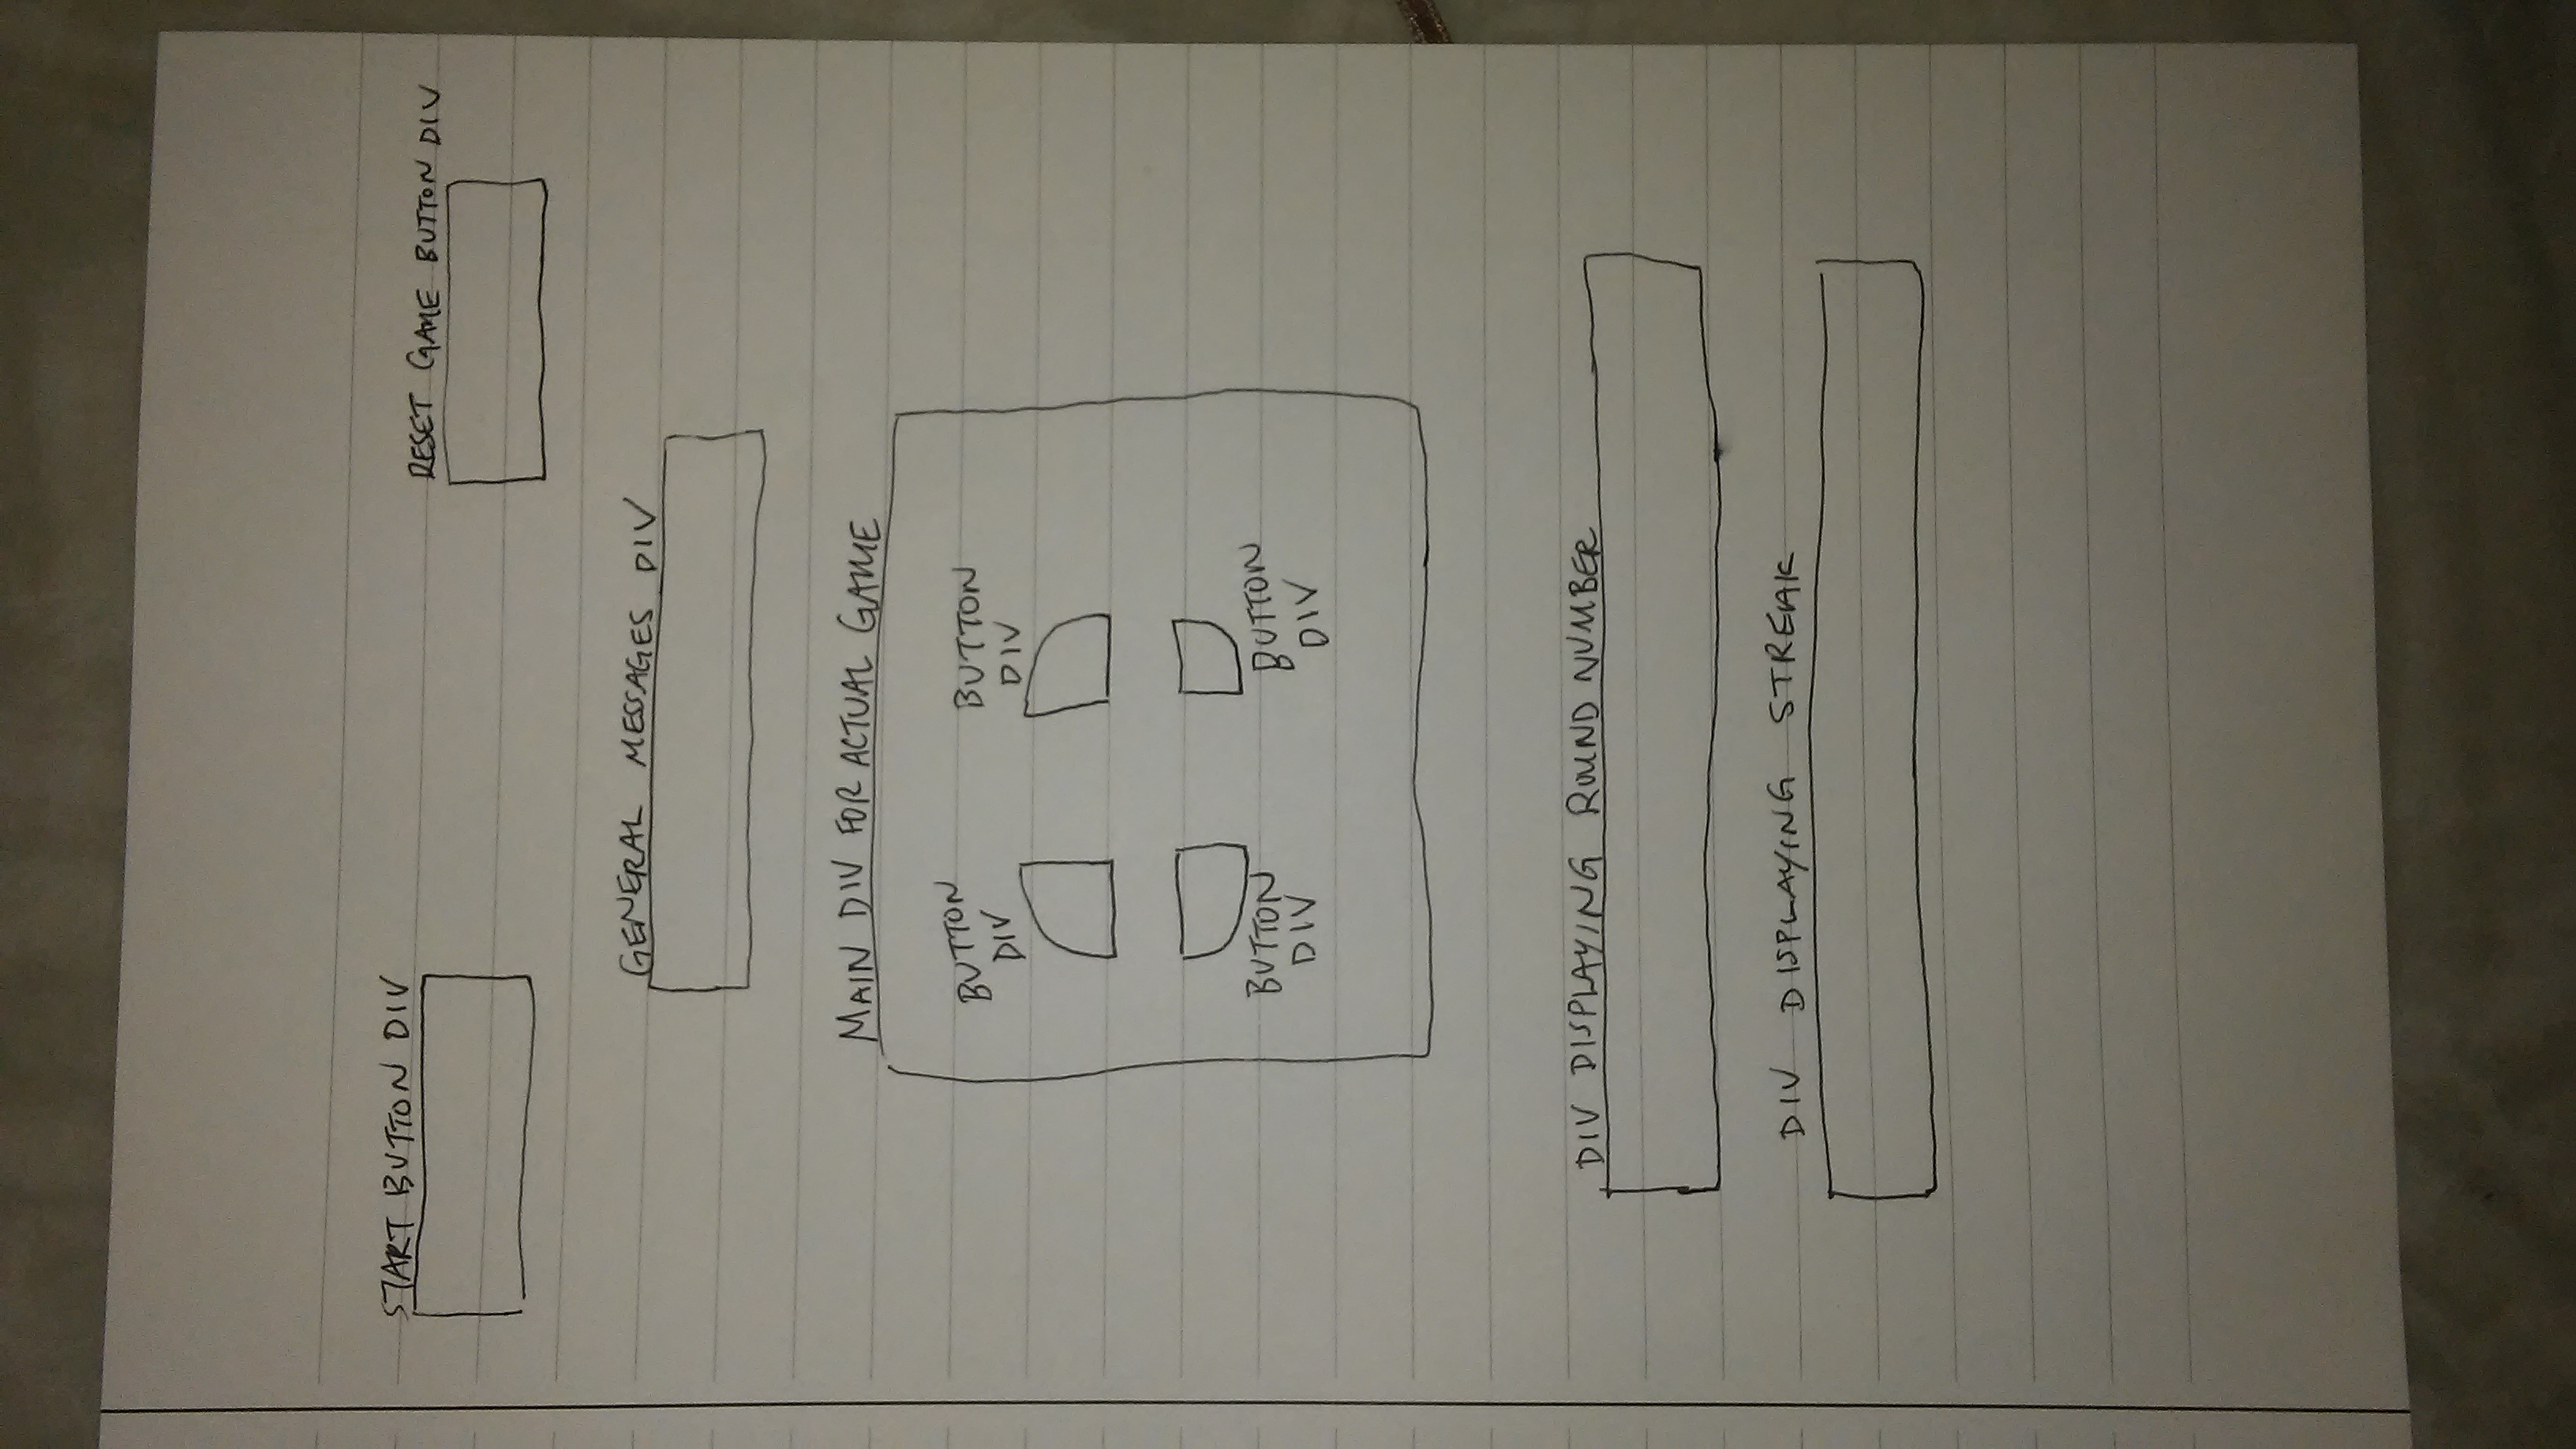 START BUTTON DIV
RESET GAME BUTTON DIV
GENERAL MESSAGES DIV
MAIN DIV FOR ACTUAL GAME
BUTTON
DIV
BUTTON
DIV
BUTTON
DIV
BUTTON
DIV
DIV DISPLAYING ROUND NUMBER
DIV DISPLAYING STREAK